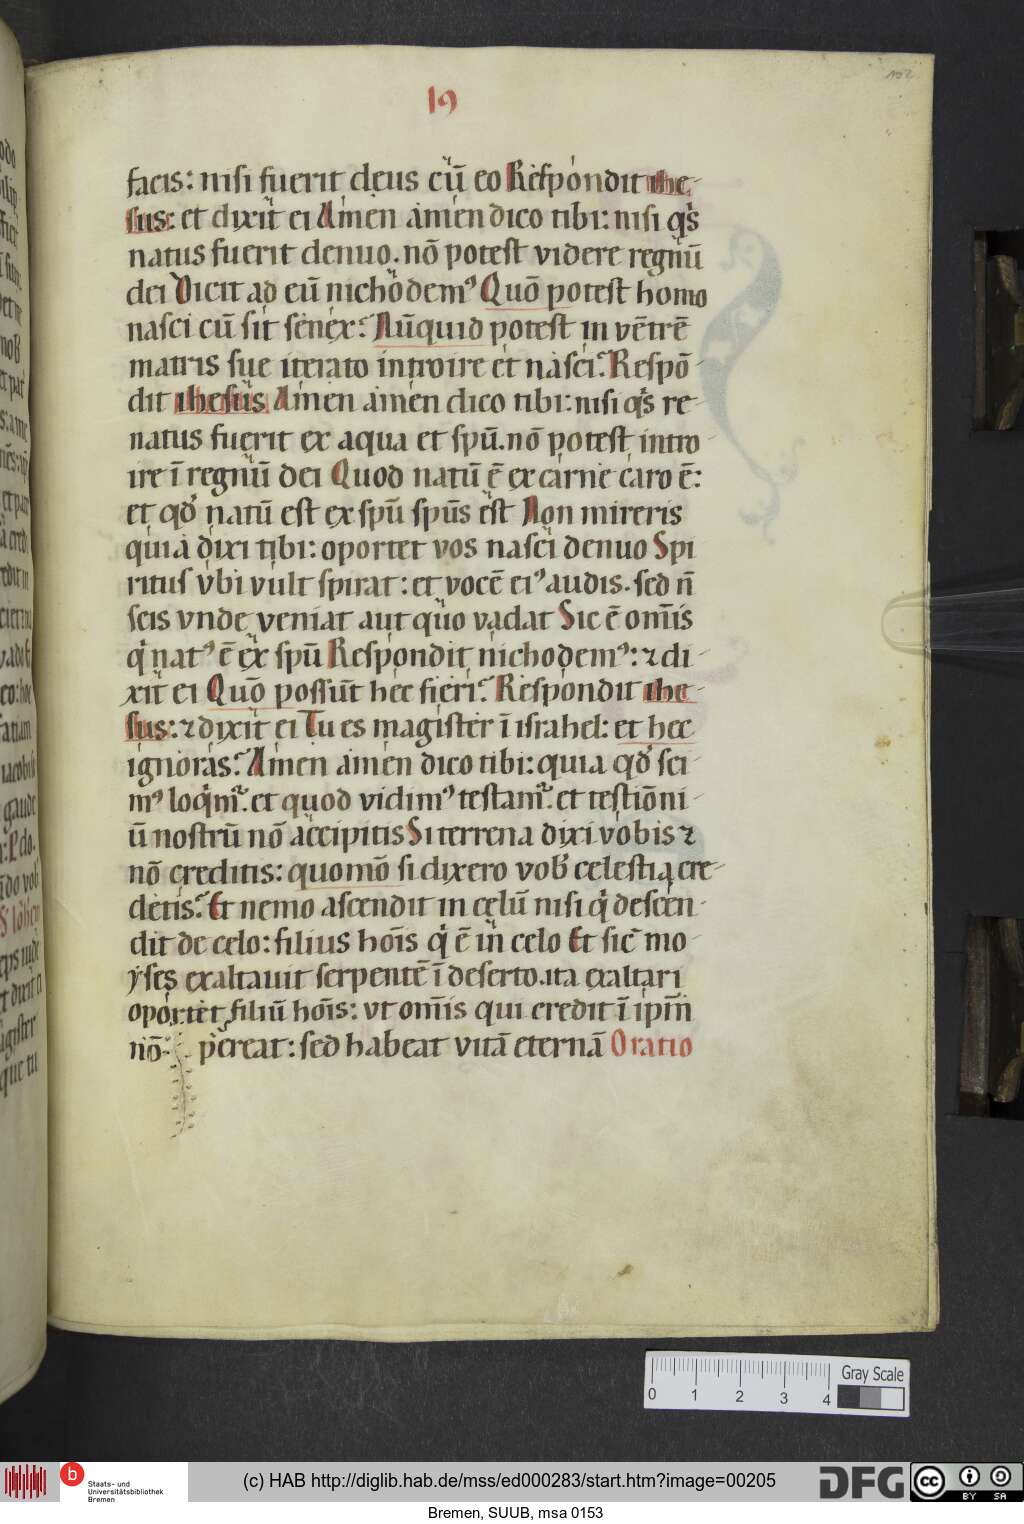 102
19
facis: nisi fuerit deus cū eo Respondit ihe-
sus: et dixit ei Amen amen dico tibi: nisi qͥs
natus fuerit denuo. nō potest videre regnū
dei Dicit ad eū nichodemꝰ Quō potest homo
nasci cū sit senex? Nūquid potest in vētrē
matris sue iterato introire et nasci? Respō-
dit ihesus Amen amen dico tibi: nisi qͥs re-
natus fuerit ex aqua et spū. nō potest intro-
ire ī regnū dei Quod natū ē ex carne caro ē:
et qd' natū est ex spū spūs est Non mireris
quia dixi tibi: oportet vos nasci denuo Spi
ritus vbi vult spirat: et vocē eiꝰ audis. sed n̄
scis vnde veniat aut quo vadat Sic ē om̄is
qͥ natꝰ ē ex spū Respondit nichodemꝰ: ⁊ di-
xit ei Quō possūt hec fieri? Respondit ihe-
sus: ⁊ dixit ei Tu es magister ī israhel: et hec
ignoras? Amen amen dico tibi: quia qd' sci-
mꝰ loqͥmr. et quod vidimꝰ testamr. et testiōni-
ū nostrū nō accipitis Si terrena dixi vobis ⁊
nō creditis: quomō si dixero vob' celestia cre-
detis? Et nemo ascendit in celū nisi qͥ descen-
dit de celo: filius hoīs qͥ ē in celo Et sic mo-
yses exaltauit serpentē ī deserto. ita exaltari
oportet filiū hoīs: vt om̄is qui credit ī ipm̄
nō- pereat: sed habeat vitā eternā Oratio
0 1 2 3 4
Gray Scale
b
Staats- und
Universitätsbibliothek
Bremen
(c) HAB http://diglib.hab.de/mss/ed000283/start.htm?image=00205
DFG
cc BY SA
Bremen, SUUB, msa 0153